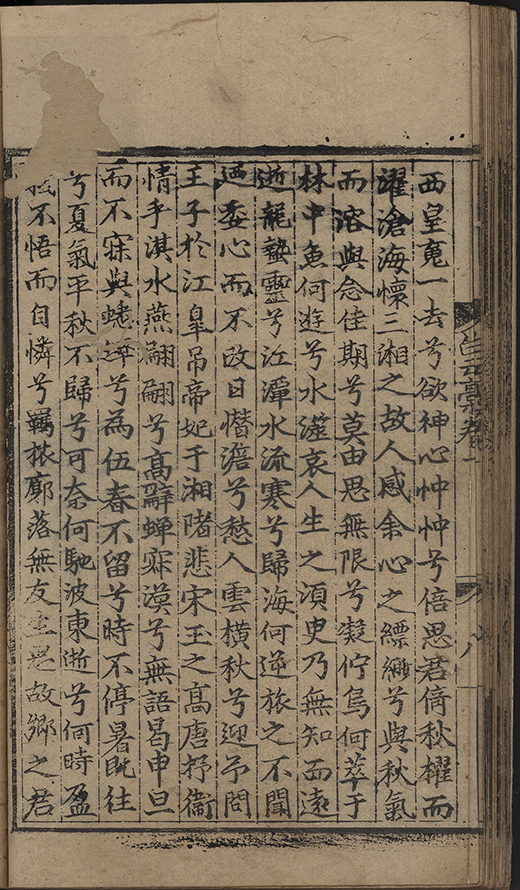 西皇竟一去兮欲神心忡忡兮倍思君倚秋櫂而
濯滄海懷三湘之故人感余心之縹緲兮與秋氣
而溶與念佳期兮莫由思無限兮凝佇鳥何萃于
林中魚何遊兮水澨哀人生之須臾乃無知而遠
逝龍蟄靈兮江潭水流寒兮歸海何逆旅之不聞
廼委心而不改日憯澹兮愁人雲橫秋兮迎予問
王子於江皐吊帝妃于湘陼悲宋玉之高唐抒衛
情乎淇水燕翩翩兮高辭蟬寂漠兮無語曷申旦
而不寐與蟋蟀兮為伍春不留兮時不停暑旣往
兮夏氣平秋不歸兮可奈何馳波東逝兮何時盈
不悟而自憐兮羈旅廓落無友生思故鄉之君